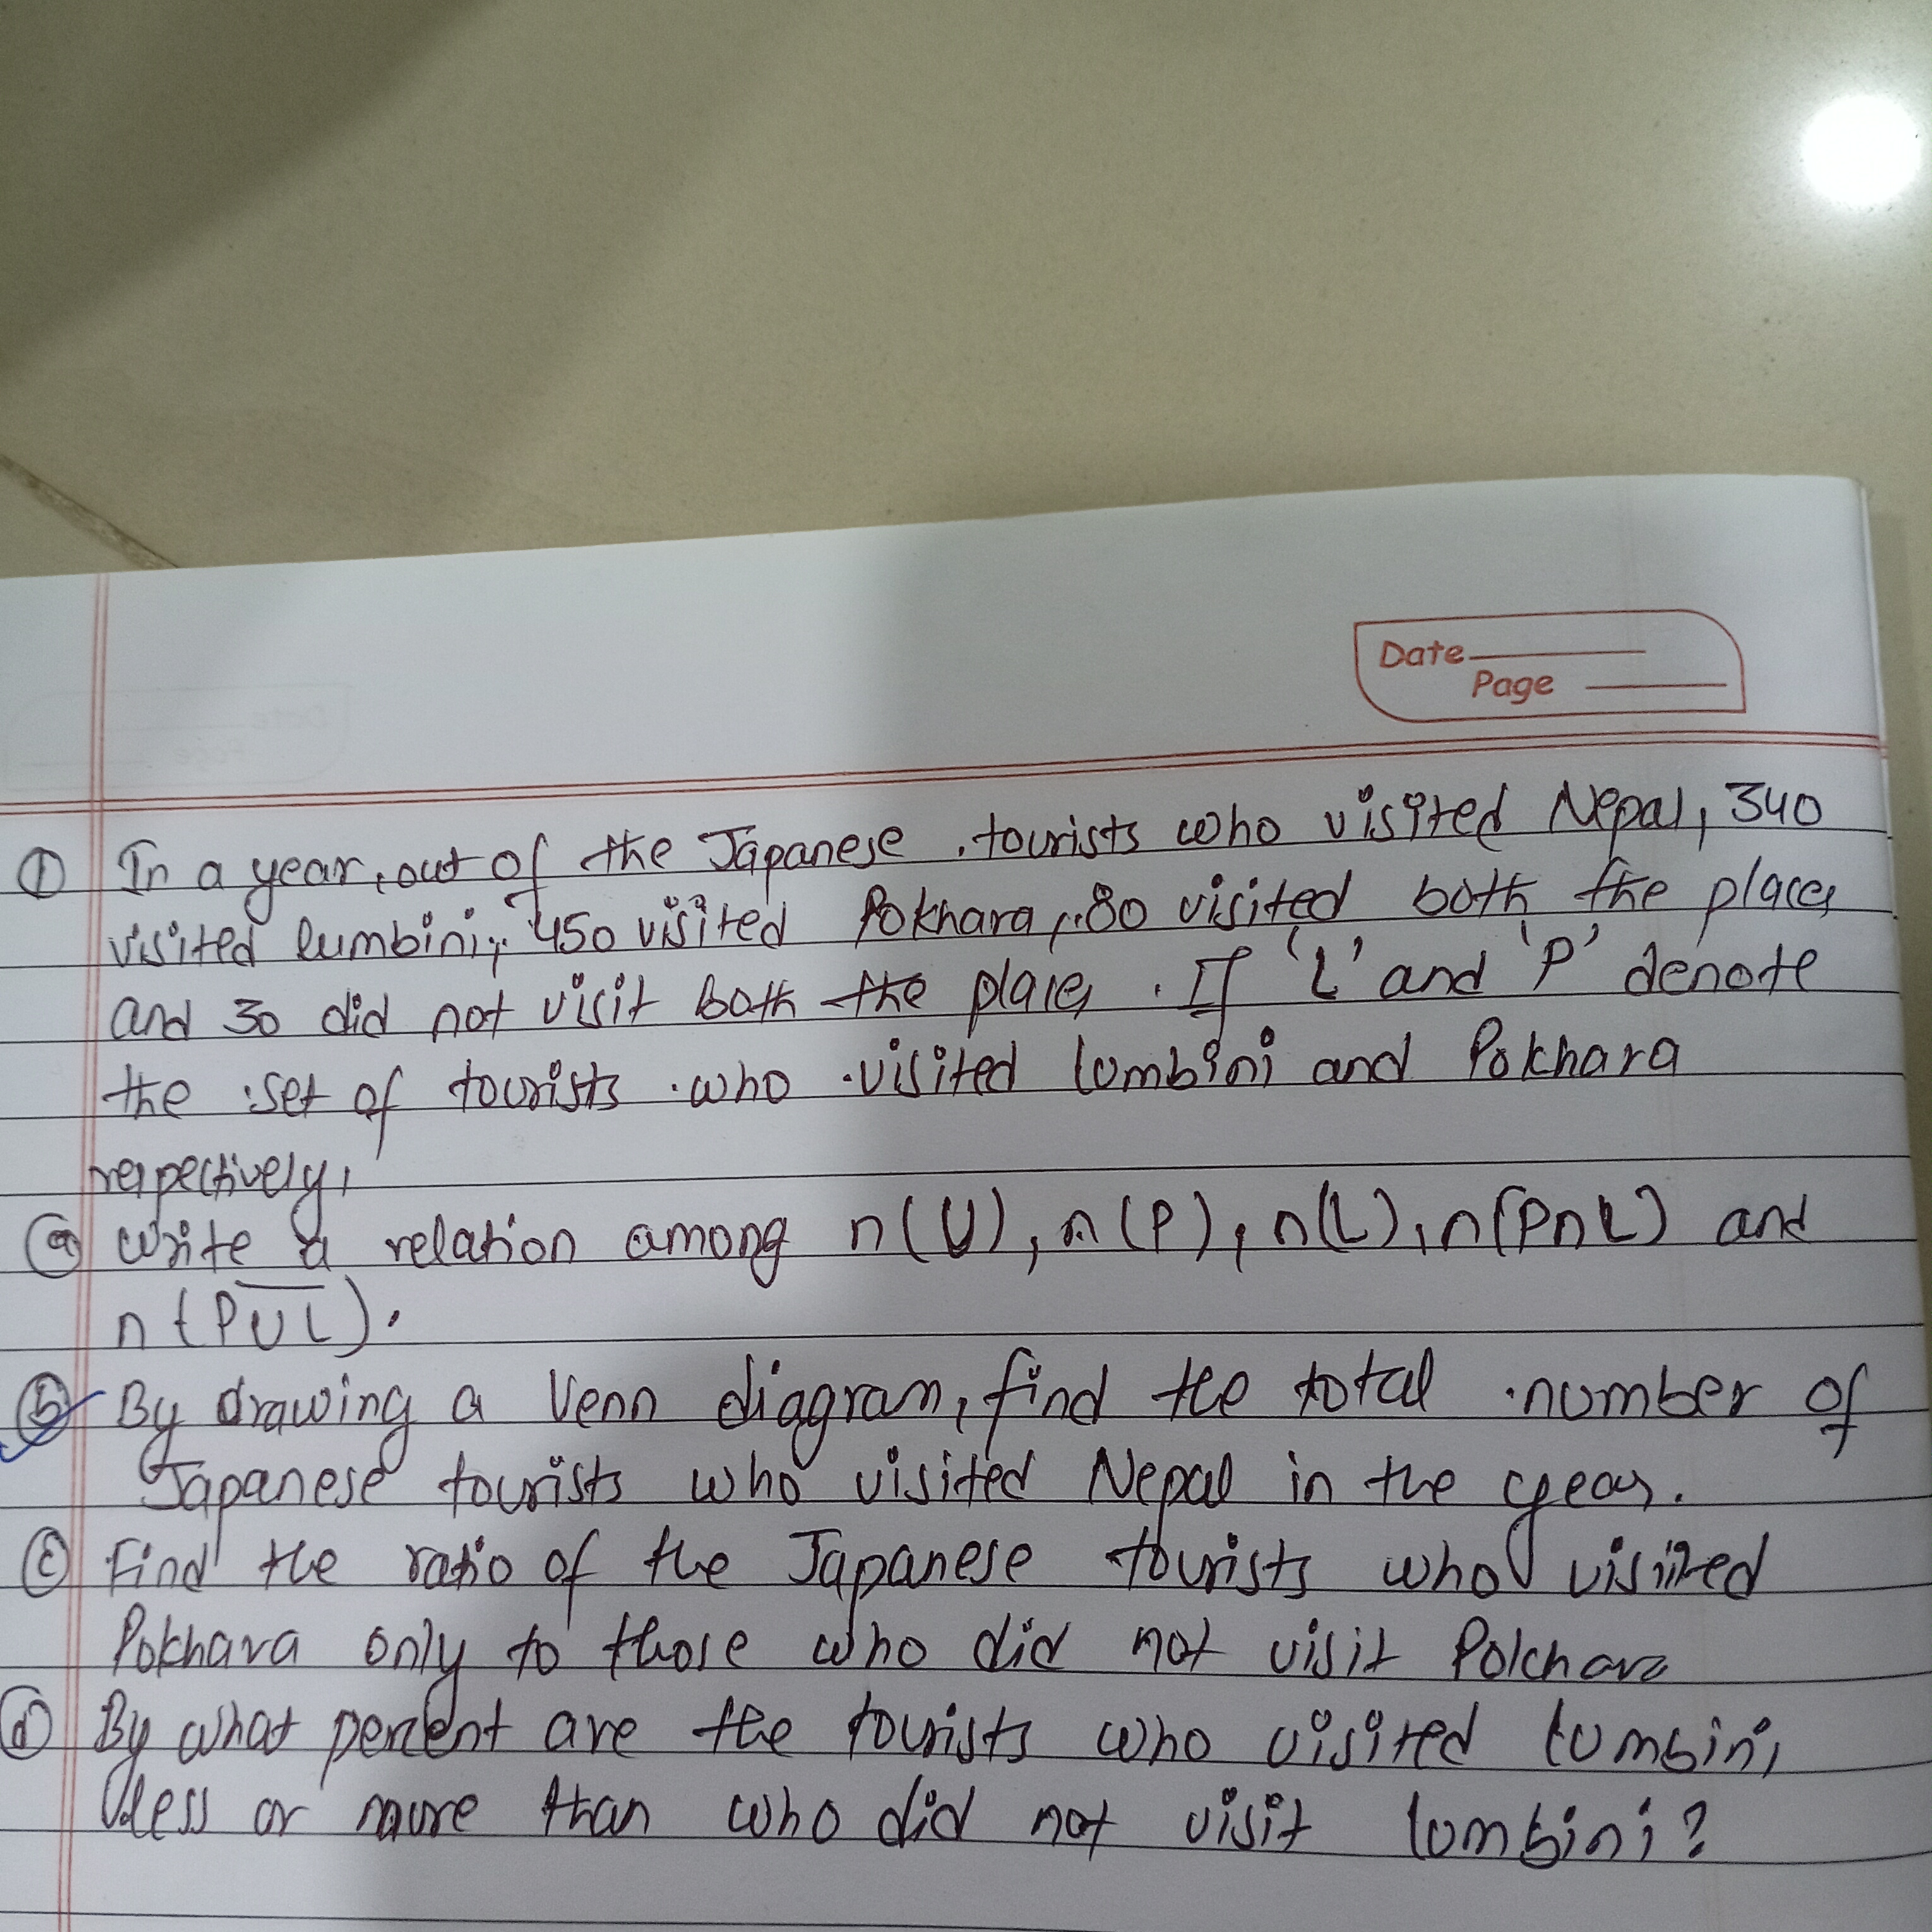 Date
Page
① In a year, out of the Japanese tourists who visited Nepal, 340
visited lumbini, 450 visited Pokhara, 80 visited both the places
and 30 did not visit both the places. If 'L' and 'P' denote
the set of tourists who visited lumbini and Pokhara
respectively,
ⓐ Write a relation among n(U), n(P), n(L), n(P∩L) and
n(P̅U̅L̅).
ⓑ By drawing a Venn diagram, find the total number of
Japanese tourists who visited Nepal in the year.
ⓒ Find the ratio of the Japanese tourists who visited
Pokhara only to those who did not visit Pokhara
ⓓ By what percent are the tourists who visited lumbini
less or more than who did not visit lumbini?